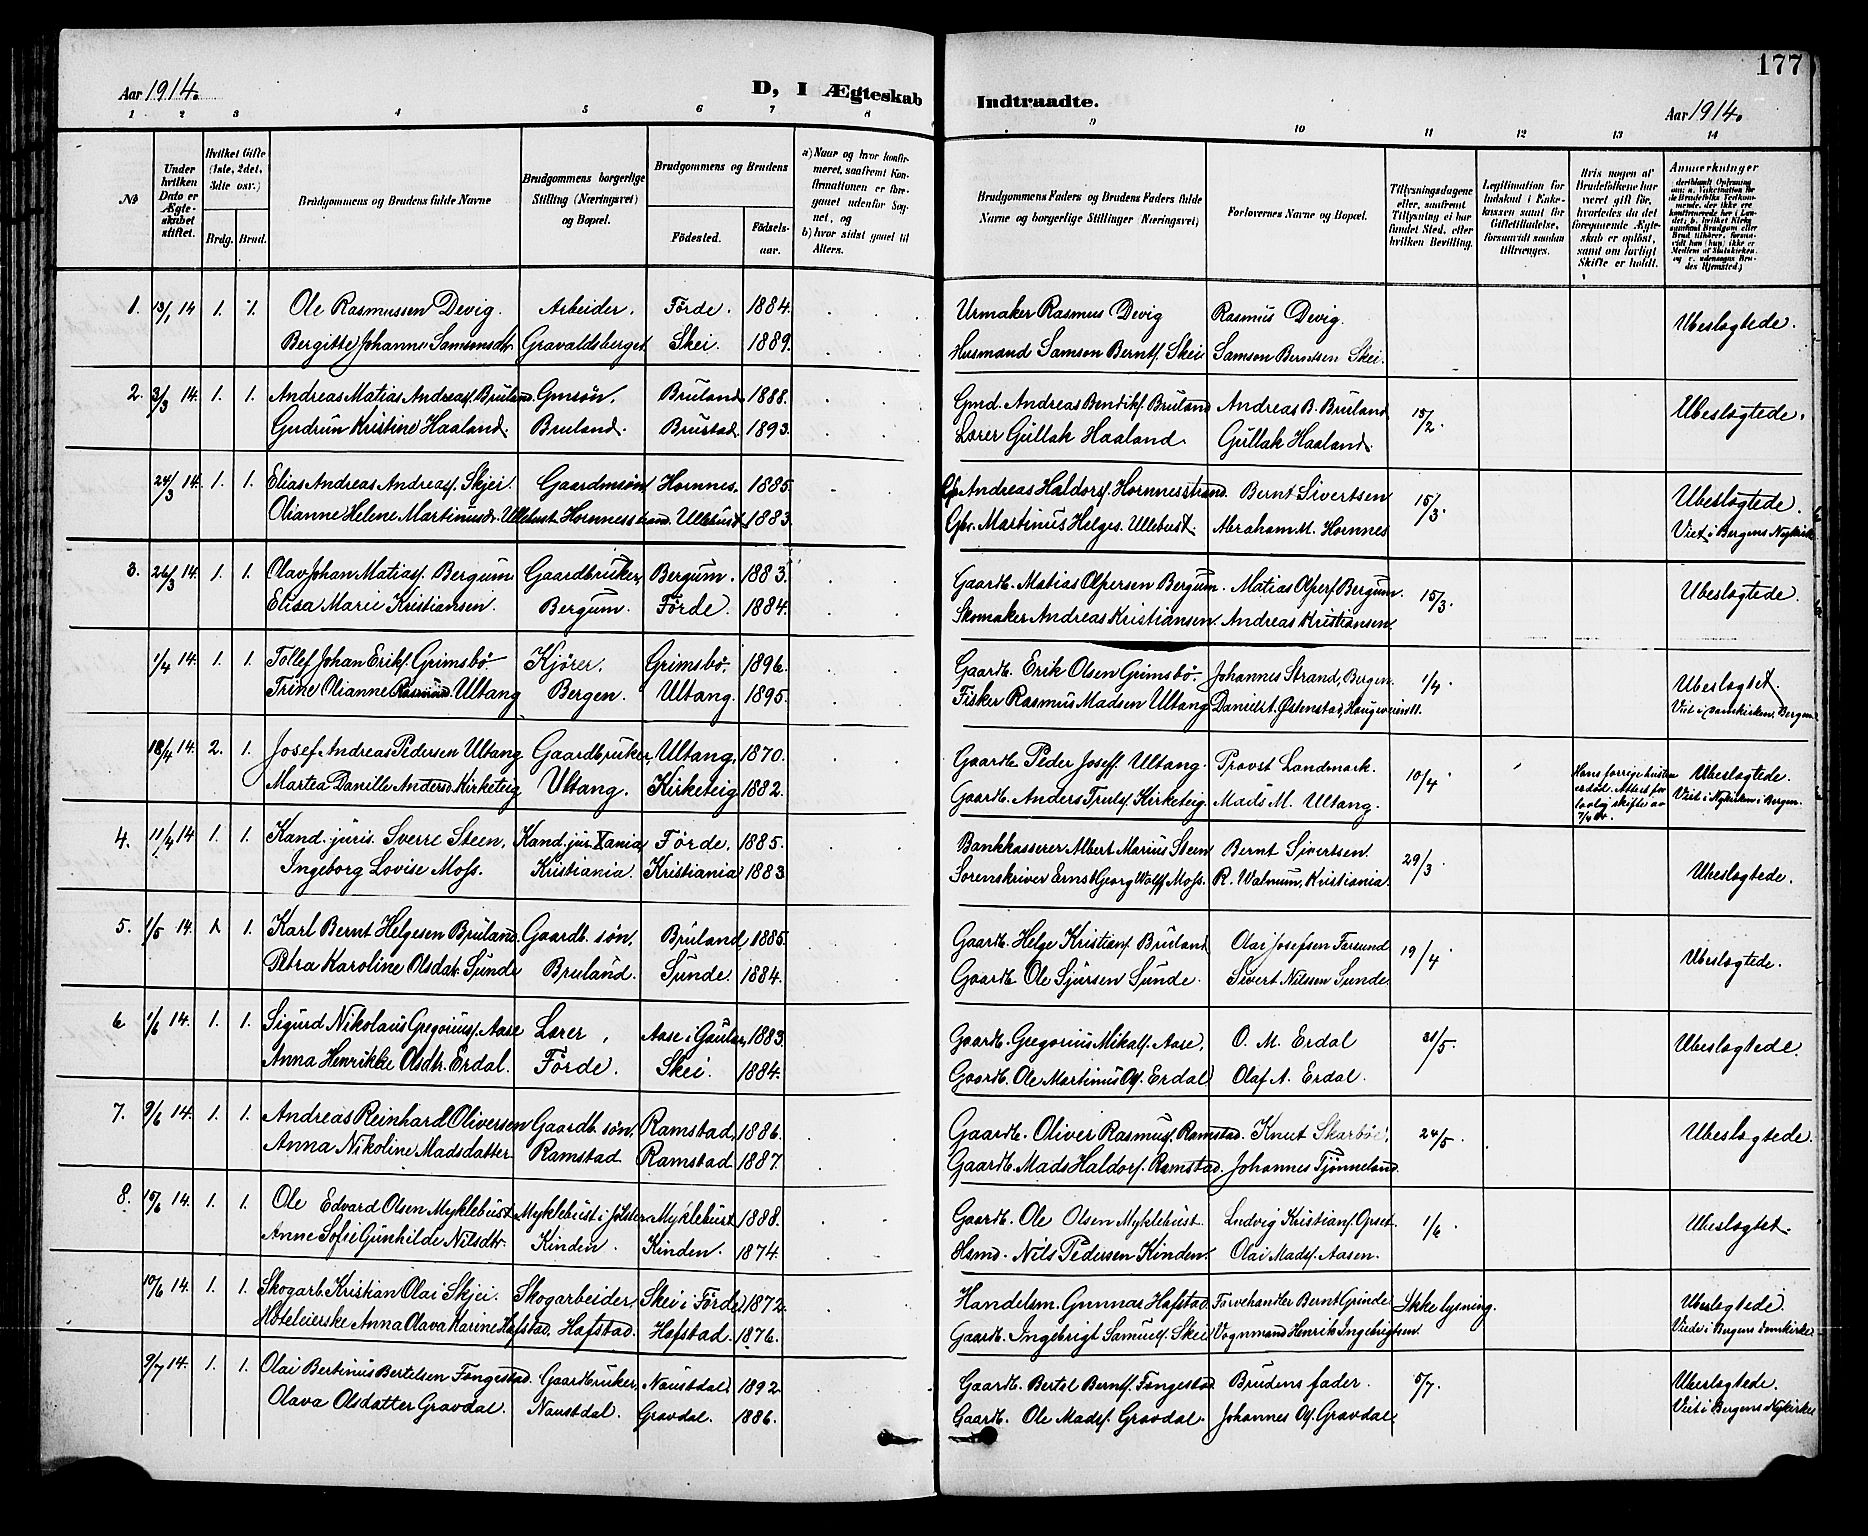 177
Aar 1914. D, I Ægteskab Indtraadte. Aar 1914.
1 2 3 4 5 6 7 8 9 10 11 12 13 14
No
Under hvilken Dato er Ægteskabet stiftet.
Hvilket Gifte (1ste, 2det, 3die osv.)
Brdg. Brud.
Brudgommens og Brudens fulde Navne
Brudgommens borgerlige Stilling (Næringsvei) og Bopæl.
Brudgommens og Brudens
Fødested. Fødselsaar.
a) Naar og hvor konfirmeret, saafremt Konfirmationen er foregaaet udenfor Sognet, og b) hvor sidst gaaet til Alters.
Brudgommens Faders og Brudens Faders fulde Navne og borgerlige Stillinger (Næringsvei)
Forlovernes Navne og Bopæl.
Tillysningsdagene eller, saafremt Tillysning ei har fundet Sted, efter hvilken Bevilling.
Legitimation for Indskud i Enkekassen samt for Giftetilladelse, forsaavidt saadan tiltrænges.
Hvis nogen af Brudefolkene har været gift før, hvorledes da det foregaaende Ægteskab er opløst, samt om lovligt Skifte er holdt.
Anmerkninger
1. 13/1 14 1. 1. Ole Rasmussen Devig. Arbeider. Förde. 1884. Urmaker Rasmus Devig Rasmus Devig. Ubeslogtede.
Bergitte Johanne Samsonsdtr. Gravaldsberget Skei. 1889. Husmand Samson Berntf. Skei Samson Berntsen Skei.
2. 3/3 14. 1. 1. Andreas Matias Andreasf. Bruland. Gmsön. Bruland 1888. Gmd. Andreas Bendikf. Bruland Andreas B. Bruland 15/2. Ubeslogtede.
Gudrun Kristine Haaland. Bruland. Brustad. 1893. Lærer Gullak Haaland. Gullak Haaland.
24/3 14. 1. 1. Elias Andreas Andreasf. Skjei. Gaardmsön Hornnes. 1885. Andreas Haldorf. Hornnesstrand Bernt Sivertsen 15/3. Ubeslogtede.
Olianne Helene Martinusdr. Ullebust Hornnesstrand. Ullebust 1883. Gbr. Martinus Helges. Ullebust. Abraham M. Hornnes Viet i Bergens Nykirke
3. 26/3 14. 1. 1. Olav Johan Matiasf. Bergum. Gaardbruker, Bergum. 1883. Gaardb. Matias Olpersen Bergum. Matias Olperf. Bergum. 15/3. Ubeslogtede.
Elisa Marie Kristiansen. Bergum. Förde. 1884. Skomaker Andreas Kristiansen. Andreas Kristiansen.
1/4 14. 1. 1. Tollef Johan Erikf. Grimsbö. Kjörer. Grimsbö. 1896. Gaardb. Erik Olsen Grimsbö. Johannes Strand, Bergen. 1/4. Ubeslogtet.
Trine Olianne Rasmusd. Ultang Bergen. Ultang. 1895. Fisker Rasmus Madsen Ultang Daniel T. Östenstad, Haugeveien 11. Viet i Domkirken, Bergen.
18/4 14. 2. 1. Josef Andreas Pedersen Ultang Gaardbruker, Ultang. 1870. Gaardb. Peder Joseff. Ultang. Provst Landmark. 10/4. Hans forrige hustru er död. Attest for lovlig skifte av 7/4 14. Ubeslogtede.
Martea Danille Andersd. Kirketeig Ultang. Kirketeig 1882. Gaardb. Anders Trulsf. Kirketeig. Mads M. Ultang. Viet i Nykirken i Bergen.
4. 11/4 14 1. 1. Kand. juris. Sverre Steen, Kand. jur. Xania Förde. 1885. Bankkasserer Albert Marius Steen Bernt Sivertsen. 29/3. Ubeslogtede.
Ingeborg Lovise Moss. Kristiania. Kristiania 1883 Sorenskriver Ernst Georg Wolff Moss. R. Walmum, Kristiania.
5. 1/5 14. 1. 1. Karl Bernt Helgesen Bruland. Gaardb. sön. Bruland 1885. Gaardb. Helge Kristianf. Bruland Olai Josefsen Farsund 19/4 Ubeslogtede.
Petra Karoline Olsdatr. Sunde Bruland. Sunde. 1884. Gaardb. Ole Sjursen Sunde. Sivert Nilssen Sunde
6 1/6 14. 1. 1. Sigurd Nikolaus Gregoriusf. Aase Lærer, Aase i Gaular. 1883. Gaardb. Gregorius Mikalf. Aase. O. M. Erdal 31/5. Ubeslogtede.
Anna Henrikke Olsdtr. Erdal. Förde. Skei. 1884. Gaardb. Ole Martinus Olf. Erdal Olaf A. Erdal.
7. 9/6 14. 1. 1. Andreas Reinhard Oliversen Gaardb. sön. Ramstad, 1886. Gaardb. Oliver Rasmusf. Ramstad. Knut Skarbö. 24/5. Ubeslogtede.
Anna Nikoline Madsdatter Ramstad. Ramstad 1887. Gaardb. Mads Haldorf. Ramstad. Johannes Tjönneland
8. 15/6 14. 1. 1. Ole Edvard Olsen Myklebust Myklebust i Jölster Myklebust 1888. Gaardb. Ole Olsen Myklebust. Ludvig Kristianf. Opset 1/6. Ubeslogtet.
Anne Sofie Gunhilde Nilsdtr. Kinden. Kinden. 1874. Hsmd. Nils Pedersen Kinden. Olai Madsf. Aasen.
10/6 14. 1. 1. Skogarb. Kristian Olai Skjei. Skogarbeider, Skei i Förde 1872. Handelsm. Gunnas Hafstad. Farvehandler Bernt Grinde. Ikke lysning. Ubeslogtede.
Hoteleierske Anna Olava Karine Hafstad. Hafstad. Hafstad. 1876. Gaardb. Ingebrigt Samuelf. Skei Vognmand Henrik Ingebrigtsen. Viede i Bergens domkirke
9/7 14. 1. 1. Olai Bertinus Bertelsen Fongestad. Gaardbruker, Naustdal 1892 Gaardb. Bertel Berntf. Fongestad Brudens fader. 5/7. Ubeslogtede.
Olava Olsdatter Gravdal. Naustdal. Gravdal. 1886. Gaardb. Ole Madsf. Gravdal. Johannes Olf. Gravdal. Viet i Bergens Nykirke